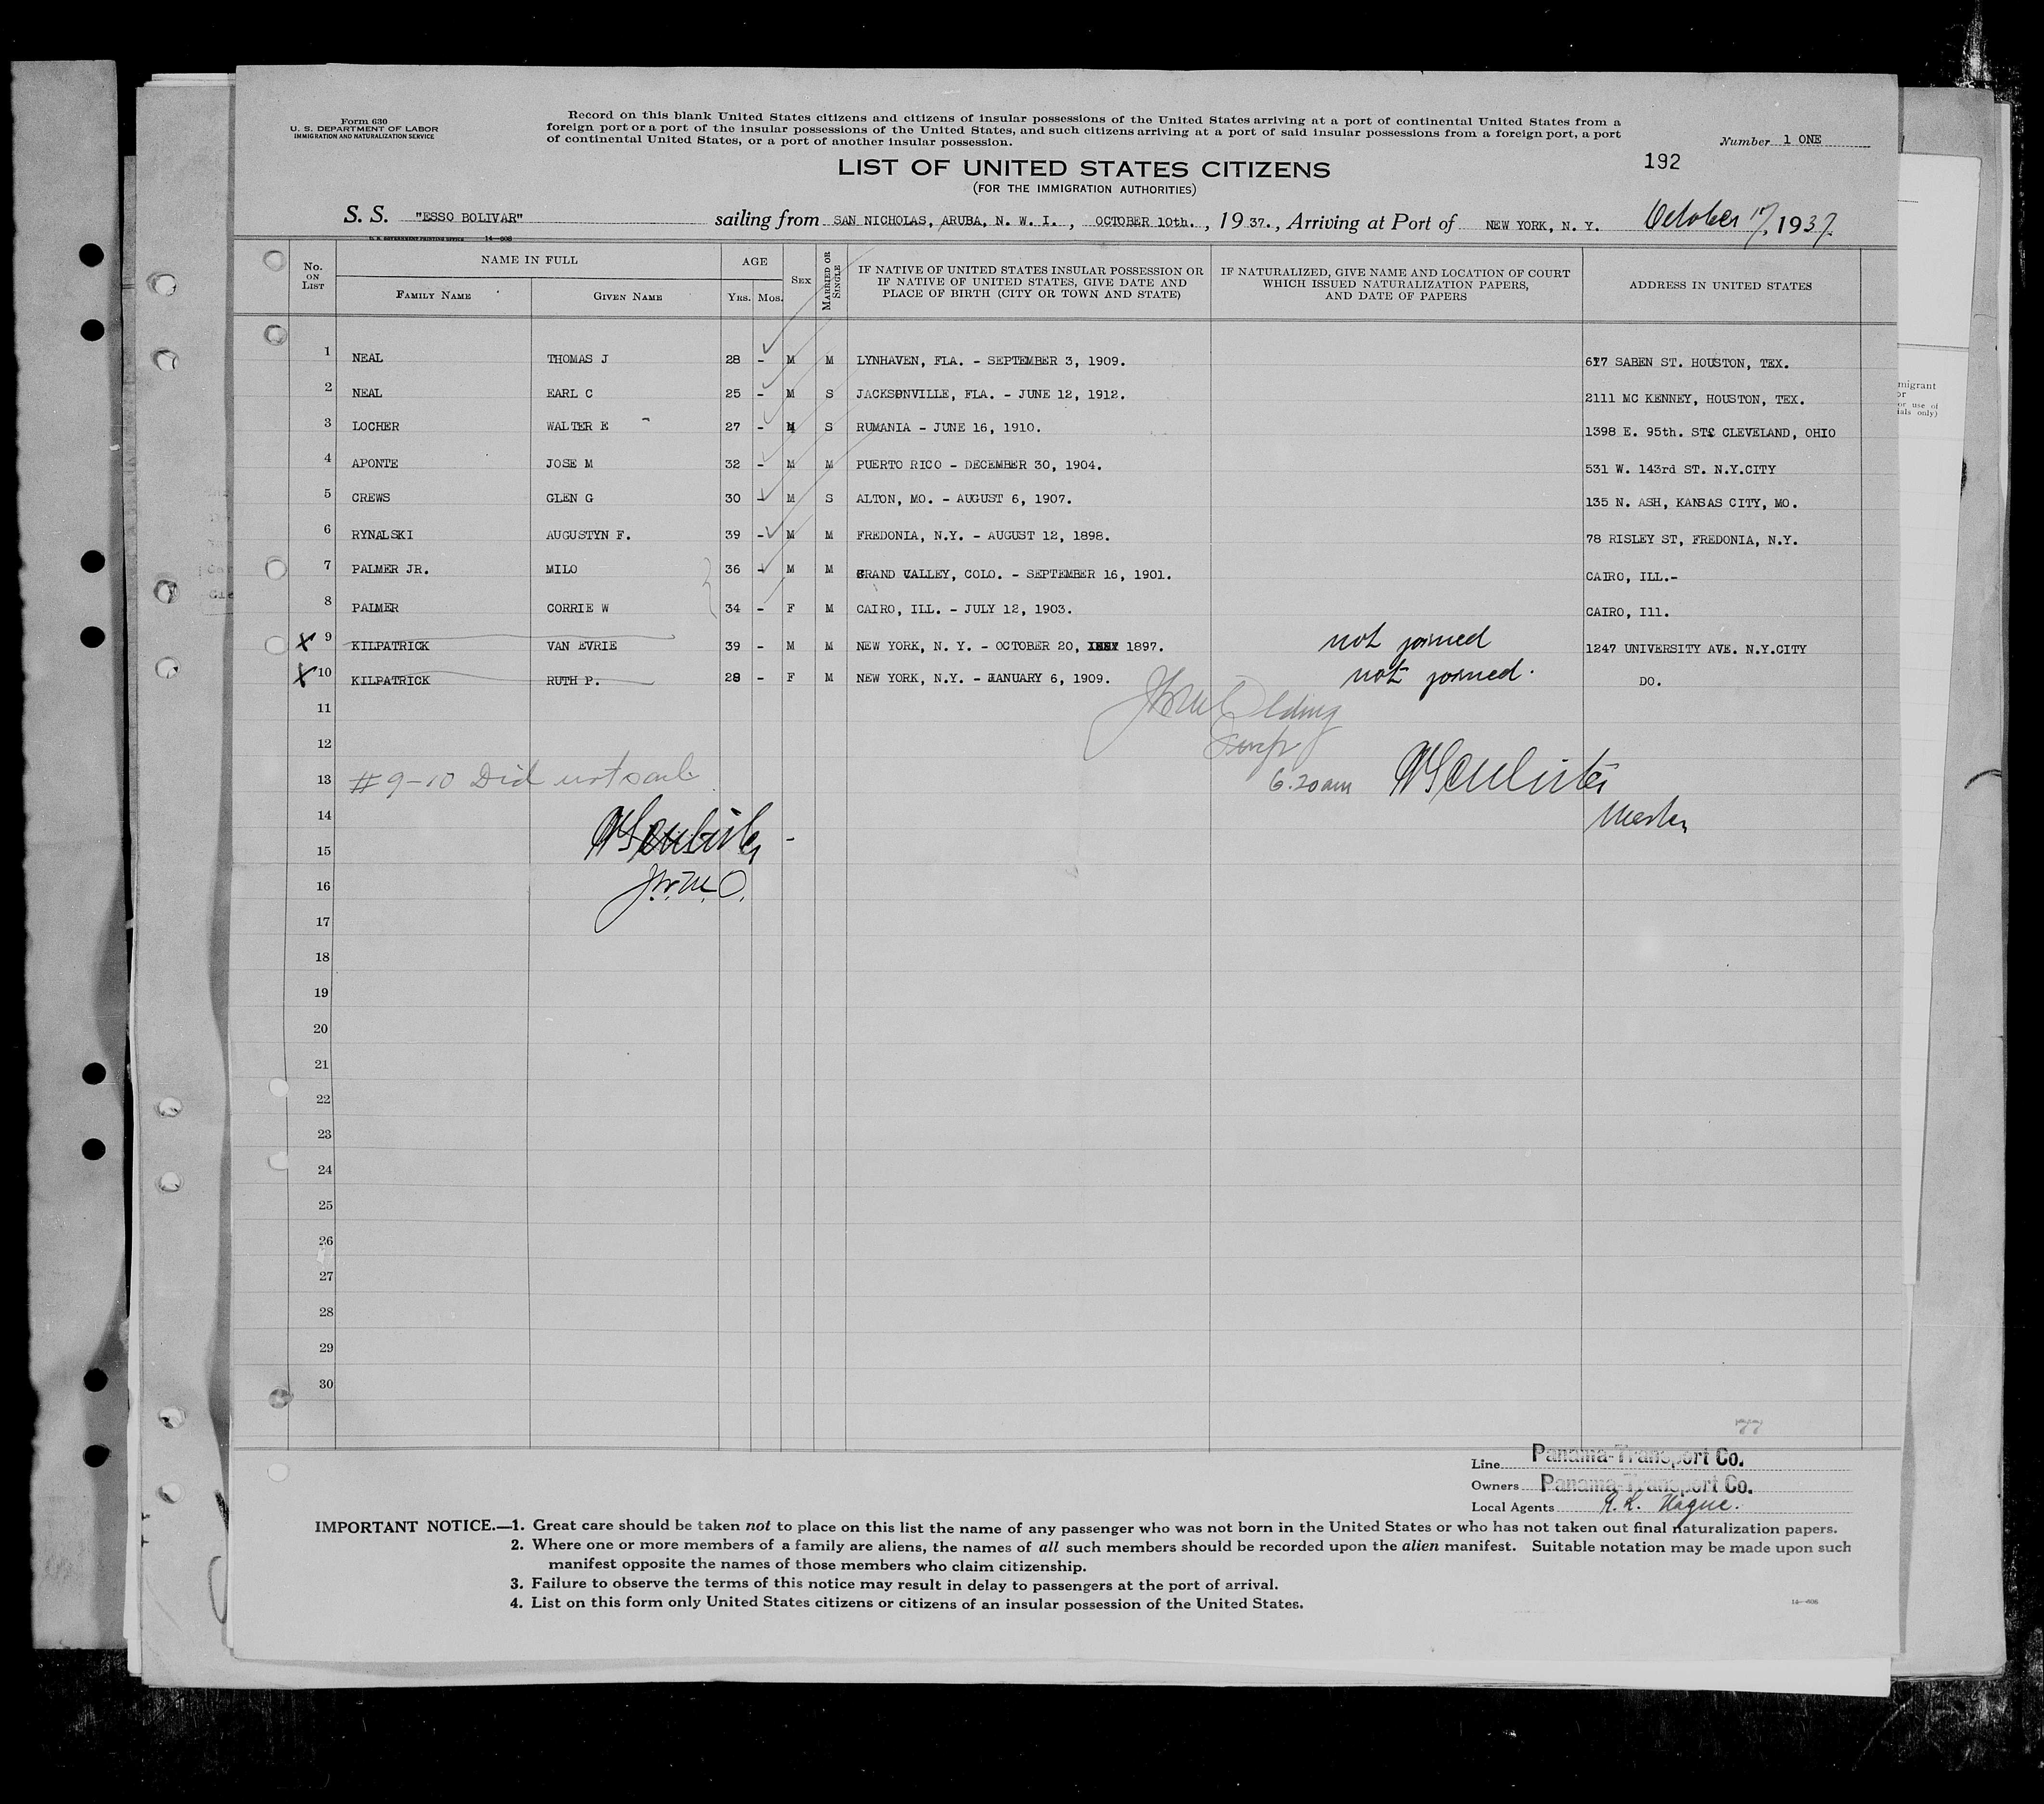 Form 630
U. S. DEPARTMENT OF LABOR
IMMIGRATION AND NATURALIZATION SERVICE
Record on this blank United States citizens and citizens of insular possessions of the United States arriving at a port of continental United States from a
foreign port or a port of the insular possessions of the United States, and such citizens arriving at a port of said insular possessions from a foreign port, a port
of continental United States, or a port of another insular possession.
Number 1 ONE
192
LIST OF UNITED STATES CITIZENS
(FOR THE IMMIGRATION AUTHORITIES)
S. S. "ESSO BOLIVAR" sailing from SAN NICHOLAS, ARUBA, N. W. I., OCTOBER 10th., 1937., Arriving at Port of NEW YORK, N. Y. October 17, 1937.
U. S. GOVERNMENT PRINTING OFFICE 14—608
No. ON LIST
NAME IN FULL
FAMILY NAME
GIVEN NAME
AGE
YRS. MOS.
SEX
MARRIED OR SINGLE
IF NATIVE OF UNITED STATES INSULAR POSSESSION OR
IF NATIVE OF UNITED STATES, GIVE DATE AND
PLACE OF BIRTH (CITY OR TOWN AND STATE)
IF NATURALIZED, GIVE NAME AND LOCATION OF COURT
WHICH ISSUED NATURALIZATION PAPERS,
AND DATE OF PAPERS
ADDRESS IN UNITED STATES
1 NEAL THOMAS J 28 - M M LYNHAVEN, FLA. - SEPTEMBER 3, 1909. 617 SABEN ST. HOUSTON, TEX.
2 NEAL EARL C 25 - M S JACKSONVILLE, FLA. - JUNE 12, 1912. 2111 MC KENNEY, HOUSTON, TEX.
3 LOCHER WALTER E 27 - M S RUMANIA - JUNE 16, 1910. 1398 E. 95th. ST. CLEVELAND, OHIO
4 APONTE JOSE M 32 - M M PUERTO RICO - DECEMBER 30, 1904. 531 W. 143rd ST. N.Y.CITY
5 CREWS GLEN G 30 - M S ALTON, MO. - AUGUST 6, 1907. 135 N. ASH, KANSAS CITY, MO.
6 RYNALSKI AUGUSTYN F. 39 - M M FREDONIA, N.Y. - AUGUST 12, 1898. 78 RISLEY ST, FREDONIA, N.Y.
7 PALMER JR. MILO 36 - M M GRAND VALLEY, COLO. - SEPTEMBER 16, 1901. CAIRO, ILL.-
8 PALMER CORRIE W 34 - F M CAIRO, ILL. - JULY 12, 1903. CAIRO, Ill.
X 9 KILPATRICK VAN EVRIE 39 - M M NEW YORK, N. Y. - OCTOBER 20, 1897. not joined 1247 UNIVERSITY AVE. N.Y.CITY
X 10 KILPATRICK RUTH P. 28 - F M NEW YORK, N.Y. - JANUARY 6, 1909. not joined. DO.
11
12
13 #9-10 Did not sail 6.20am
14 Master
15
16 J.W.M.O.
17
18
19
20
21
22
23
24
25
26
27
28
29
30
Line Panama-Transport Co.
Owners Panama-Transport Co.
Local Agents R. L. Hague.
IMPORTANT NOTICE.—1. Great care should be taken not to place on this list the name of any passenger who was not born in the United States or who has not taken out final naturalization papers.
2. Where one or more members of a family are aliens, the names of all such members should be recorded upon the alien manifest. Suitable notation may be made upon such
manifest opposite the names of those members who claim citizenship.
3. Failure to observe the terms of this notice may result in delay to passengers at the port of arrival.
4. List on this form only United States citizens or citizens of an insular possession of the United States.
14—608